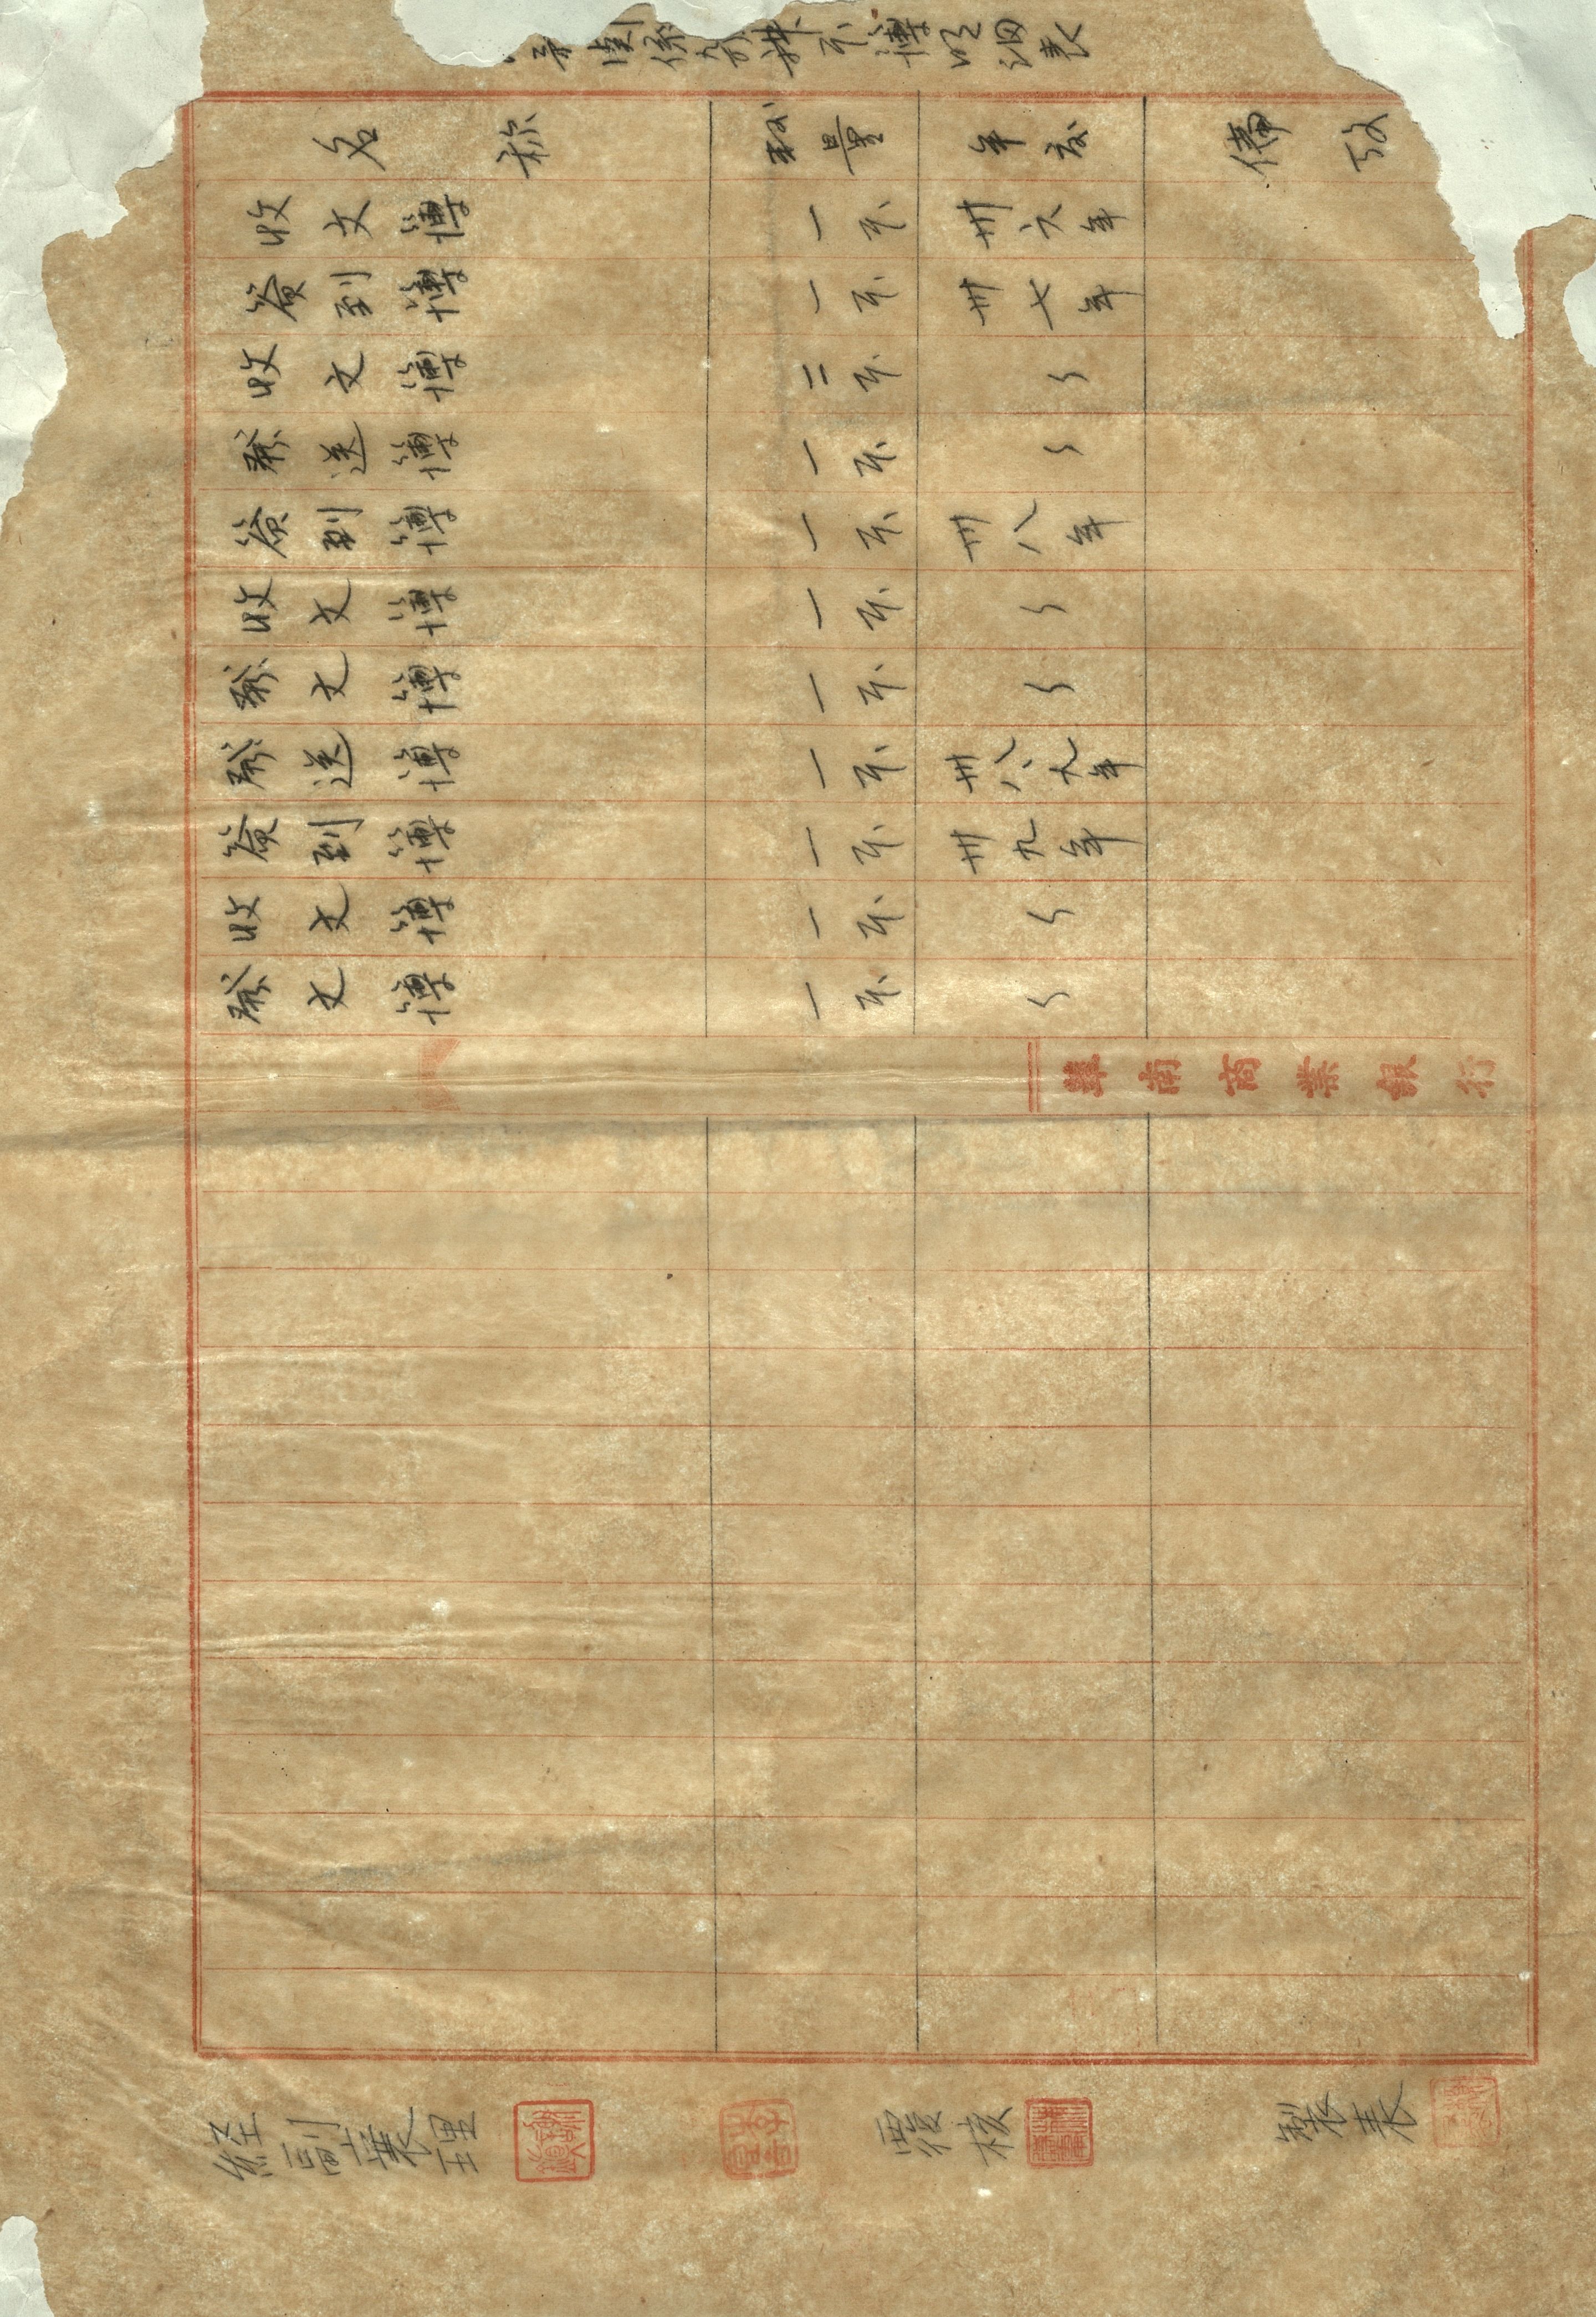 簿明細表
名称 数量 年度 備攷
收文簿 一本 卅六年
簽到簿 一本 卅七年
收文簿 二本 〃
發送簿 一本 〃
簽到簿 一本 卅八年
收文簿 一本 〃
發文簿 一本 〃
發送簿 一本 卅八、九年
簽到簿 一本 卅九年
收文簿 一本 〃
發文簿 一本 〃
華南商業銀行
經副襄理 覆核 製表